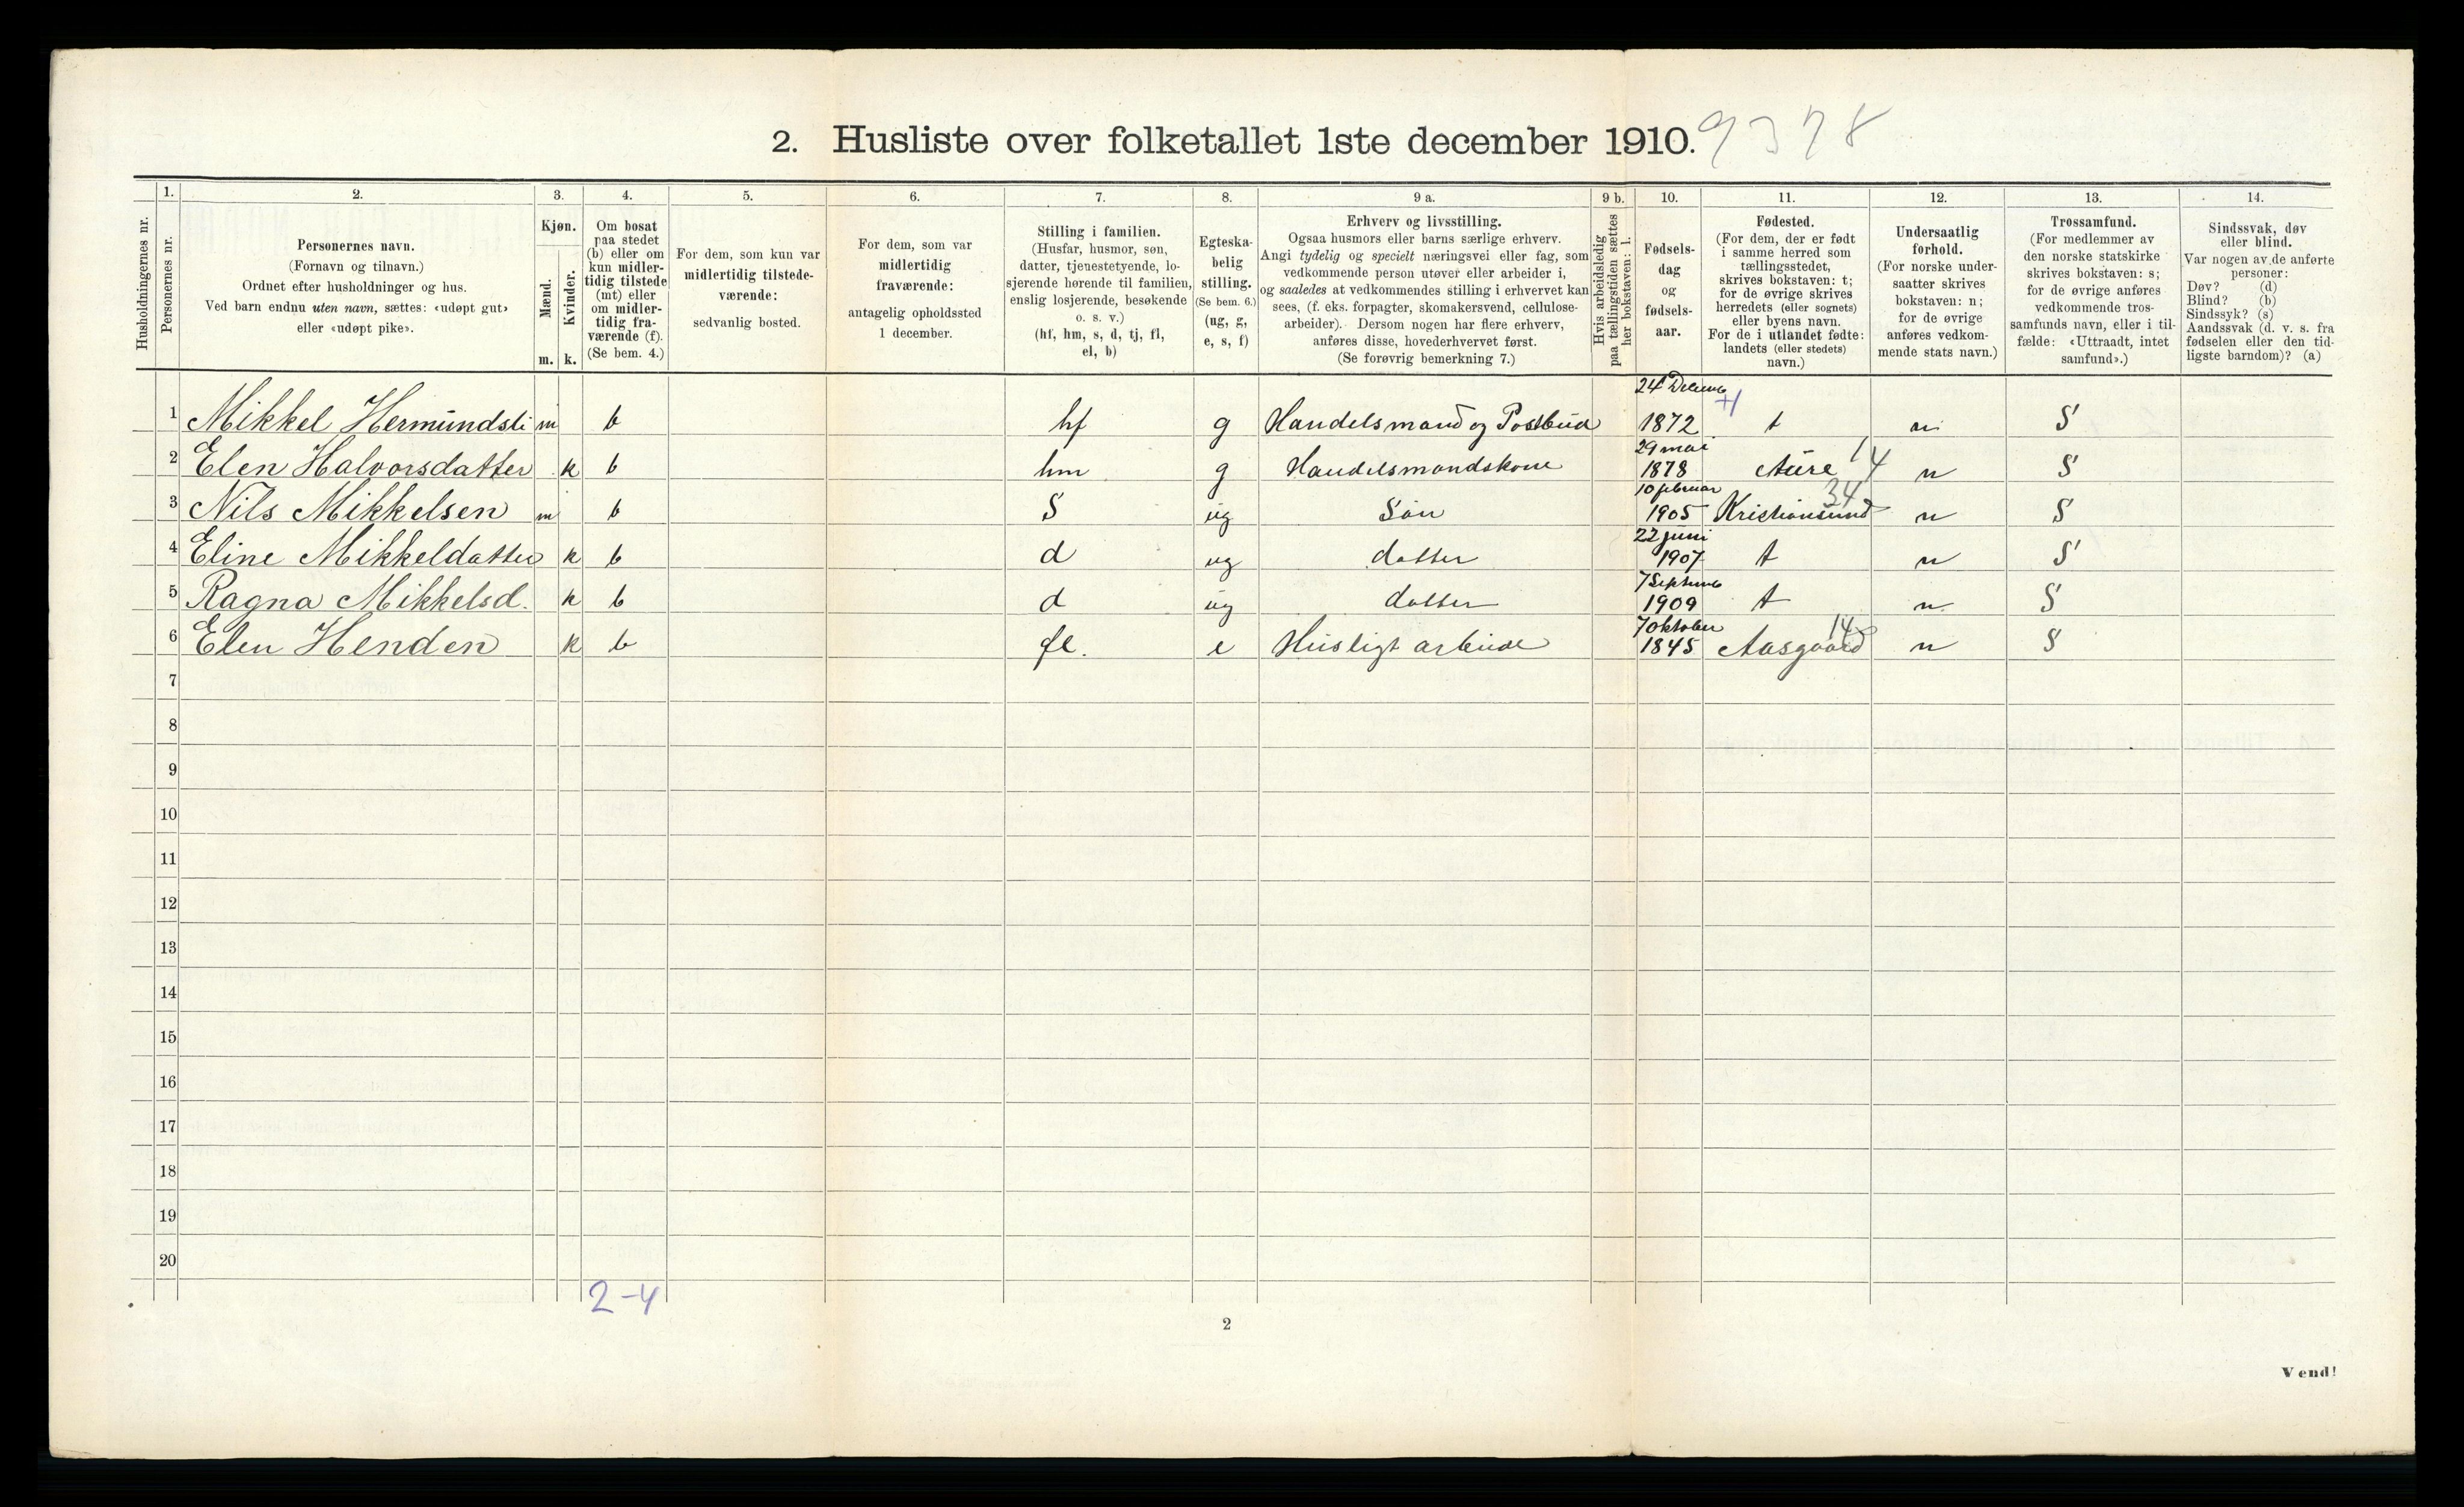 2. Husliste over folketallet 1ste december 1910. 9378
1. 2. 3. 4. 5. 6. 7. 8. 9 a. 9 b. 10. 11. 12. 13. 14.
Husholdningernes nr.
Personernes nr.
Personernes navn.
(Fornavn og tilnavn.)
Ordnet efter husholdninger og hus.
Ved barn endnu uten navn, sættes: «udøpt gut»
eller «udøpt pike».
Kjøn.
Mænd.
Kvinder.
m. k.
Om bosat
paa stedet
(b) eller om
kun midler-
tidig tilstede
(mt) eller
om midler-
tidig fra-
værende (f).
(Se bem. 4.)
For dem, som kun var
midlertidig tilstede-
værende:
sedvanlig bosted.
For dem, som var
midlertidig
fraværende:
antagelig opholdssted
1 december.
Stilling i familien.
(Husfar, husmor, søn,
datter, tjenestetyende, lo-
sjerende hørende til familien,
enslig losjerende, besøkende
o. s. v.)
(hf, hm, s, d, tj, fl,
el, b)
Egteska-
belig
stilling.
(Se bem. 6.)
(ug, g,
e, s, f)
Erhverv og livsstilling.
Ogsaa husmors eller barns særlige erhverv.
Angi tydelig og specielt næringsvei eller fag, som
vedkommende person utøver eller arbeider i,
og saaledes at vedkommendes stilling i erhvervet kan
sees, (f. eks. forpagter, skomakersvend, cellulose-
arbeider). Dersom nogen har flere erhverv,
anføres disse, hovederhvervet først.
(Se forøvrig bemerkning 7.)
Hvis arbeidsledig
paa tællingstiden sættes
her bokstaven: l.
Fødsels-
dag
og
fødsels-
aar.
Fødested.
(For dem, der er født
i samme herred som
tællingsstedet,
skrives bokstaven: t;
for de øvrige skrives
herredets (eller sognets)
eller byens navn.
For de i utlandet fødte:
landets (eller stedets)
navn.)
Undersaatlig
forhold.
(For norske under-
saatter skrives
bokstaven: n;
for de øvrige
anføres vedkom-
mende stats navn.)
Trossamfund.
(For medlemmer av
den norske statskirke
skrives bokstaven: s;
for de øvrige anføres
vedkommende tros-
samfunds navn, eller i til-
fælde: «Uttraadt, intet
samfund».)
Sindssvak, døv
eller blind.
Var nogen av de anførte
personer:
Døv? (d)
Blind? (b)
Sindssyk? (s)
Aandssvak (d. v. s. fra
fødselen eller den tid-
ligste barndom)? (a)
1 Mikkel Hermundsli m b hf g Handelsmand og Postbud 24 Decemb 1872 t n S
2 Elen Halvorsdatter k b hm g Handelsmandskone 29 mai 1878 Aure 14 n S
3 Nils Mikkelsen m b S ug Søn 10 februar 1905 Kristiansund 34 n S
4 Eline Mikkeldatter k b d ug datter 22 juni 1907 t n S
5 Ragna Mikkelsd. k b d ug datter 7 Septemb 1909 t n S
6 Elen Henden k b fl. e Husligt arbeide 7 oktober 1845 Aasgaard 14 n S
7
8
9
10
11
12
13
14
15
16
17
18
19
20
2-4
2
Vend!